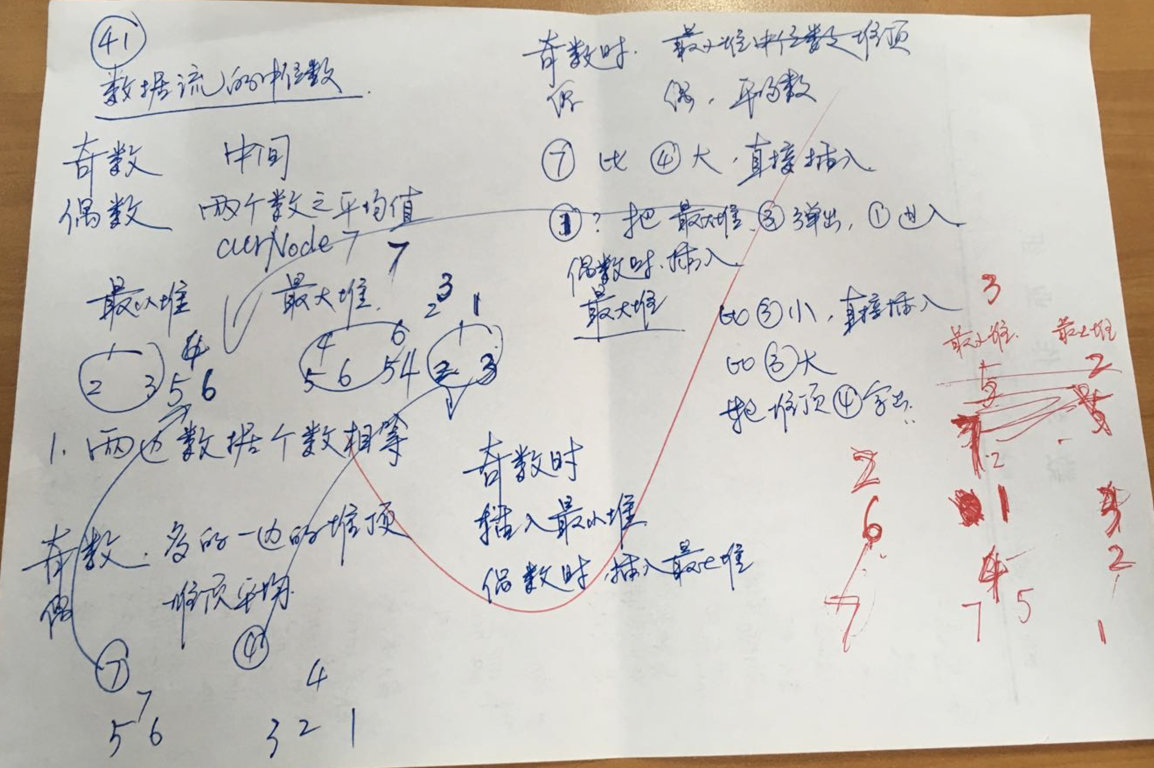 41
数据流的中位数
奇数 中间
偶数 两个数之平均值
curNode 7 7
最小堆 最大堆
1 4 4 6 2 3 1 1
2 3 5 6 5 6 5 4 2 3
1. 两边数据个数相等
奇数. 多的一边的堆顶
偶 堆顶平均.
7 4
7 4
5 6 3 2 1
奇数时. 最小堆中位数堆顶
偶 偶. 平均数
7 比 4 大, 直接插入
1? 把最大堆 3 弹出, 1 进入
偶数时, 插入
最大堆 比 3 小, 直接插入
比 3 大
把堆顶 4
奇数时
插入最小堆
偶数时, 插入最大堆
3
最小堆. 最大堆
2
5
2
2 1 3
6 4 2
7 7 5 1